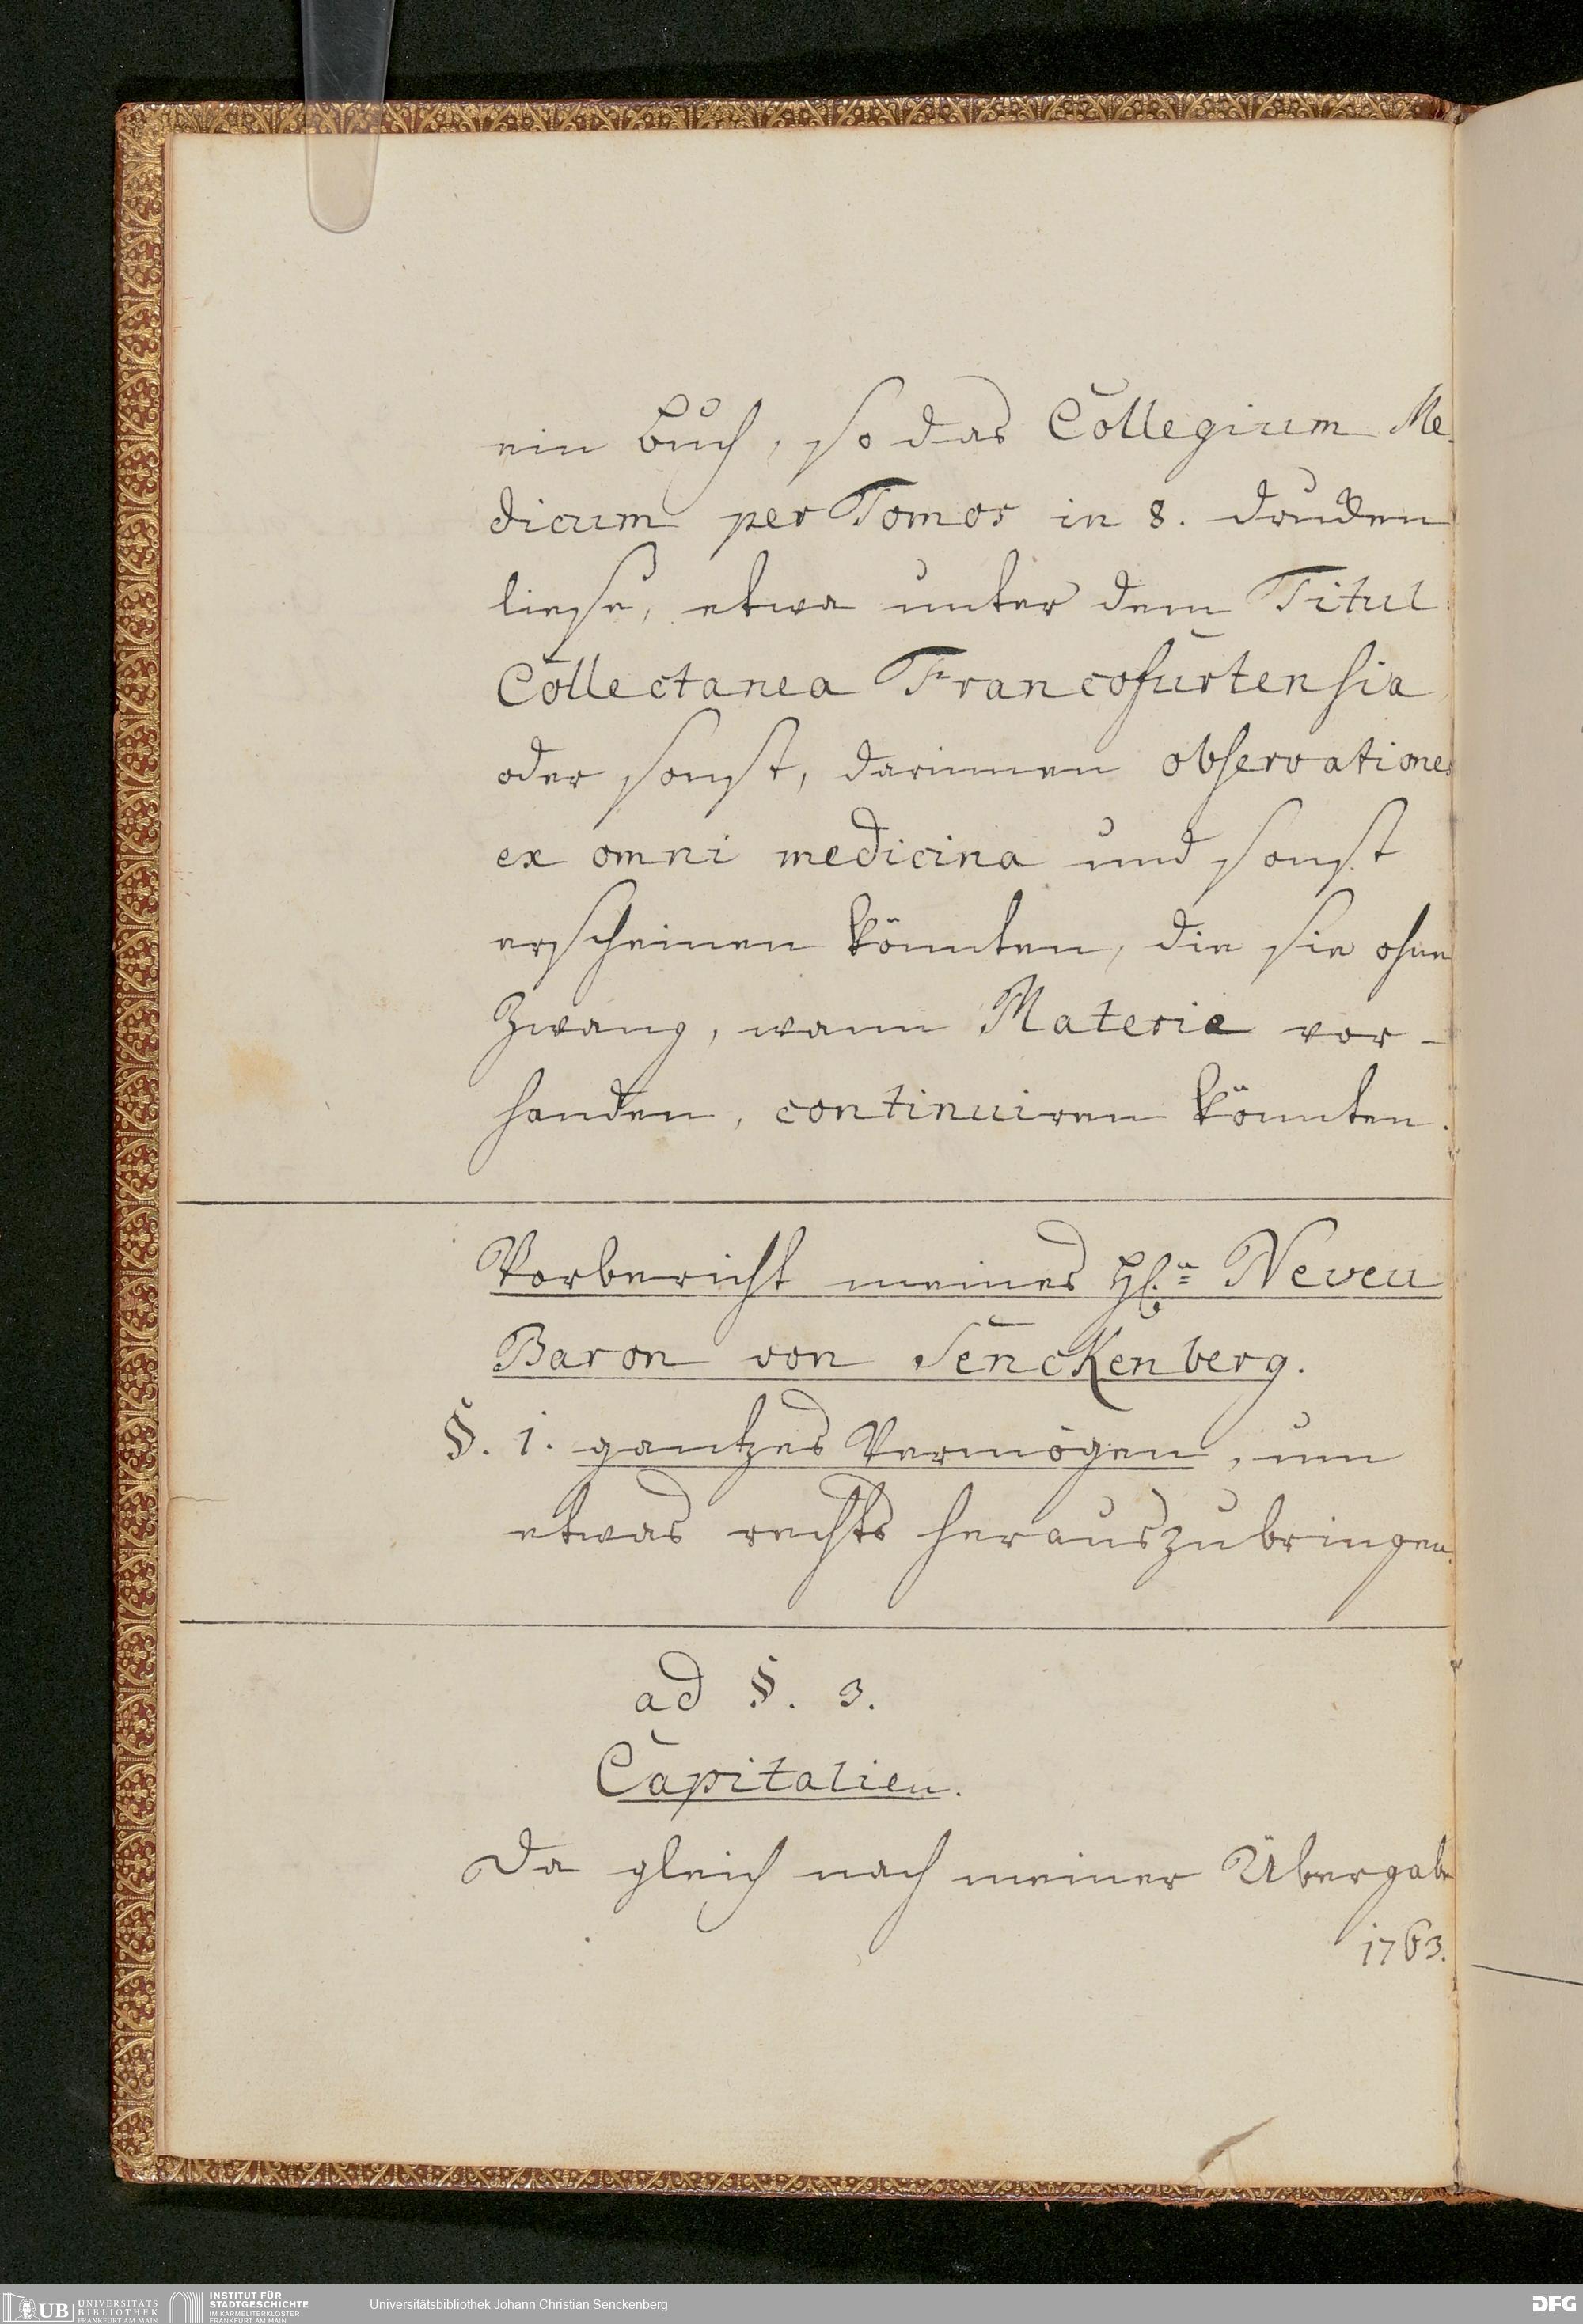 ein Buch, so das Collegium Me-
dicum per Tomos in 8. drucken
liese, etwa unter dem Titul
Collectanea Francofurtensia
oder sonst, darinnen observationes
ex omni medicina und sonst
erscheinen könnten, die sie ohne
Zwang, wann Materie vor-
handen, continuiren könnten.
Vorbericht meines H. Neveu
Baron von Senckenberg.
§. 1. gantzes Vermögen, um
etwas rechts herauszubringen.
ad §. 3.
Capitalien.
Da gleich nach meiner Übergabe
1763.
UB UNIVERSITÄTS
BIBLIOTHEK
FRANKFURT AM MAIN
INSTITUT FÜR
STADTGESCHICHTE
IM KARMELITERKLOSTER
FRANKFURT AM MAIN
Universitätsbibliothek Johann Christian Senckenberg
DFG